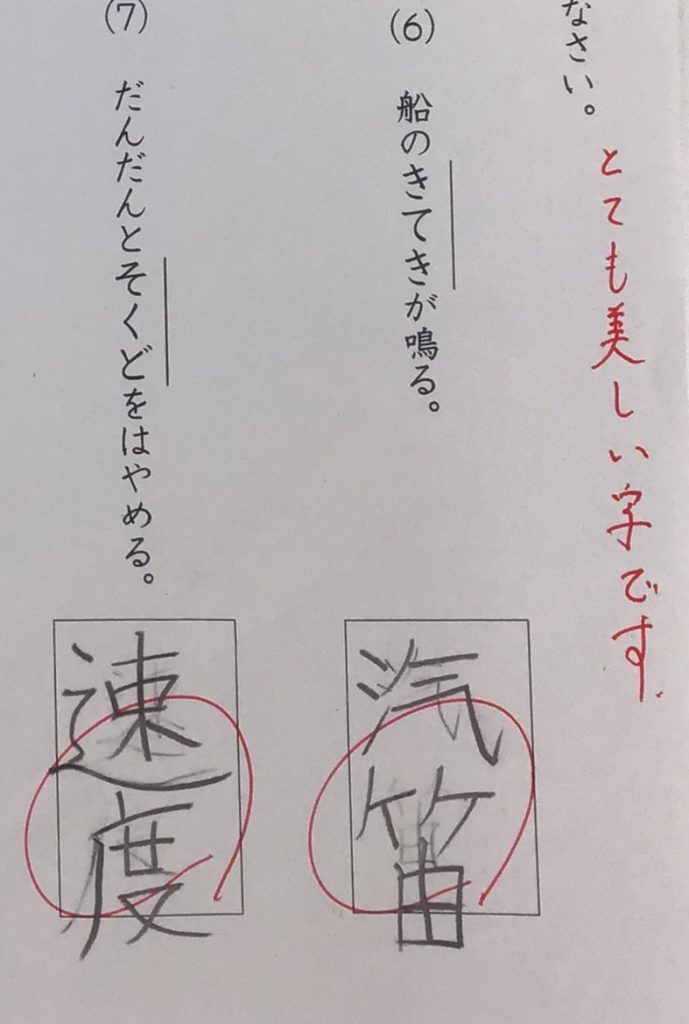 なさい。
とても美しい字です。
(6) 船のきてきが鳴る。
汽笛
(7) だんだんとそくどをはやめる。
速度